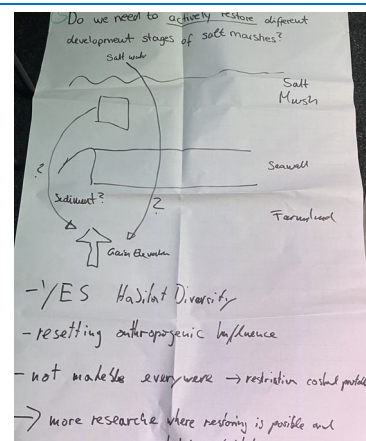 Do we need to actively restore different
development stages of salt marshes?
Salt water
Salt
Marsh
?
Seawall
Sediment?
?
Farmland
Gain Elevation
- YES Habitat Diversity
- resetting anthropogenic Influence
- not everywhere → coastal
→ more researche where restoring is posible and